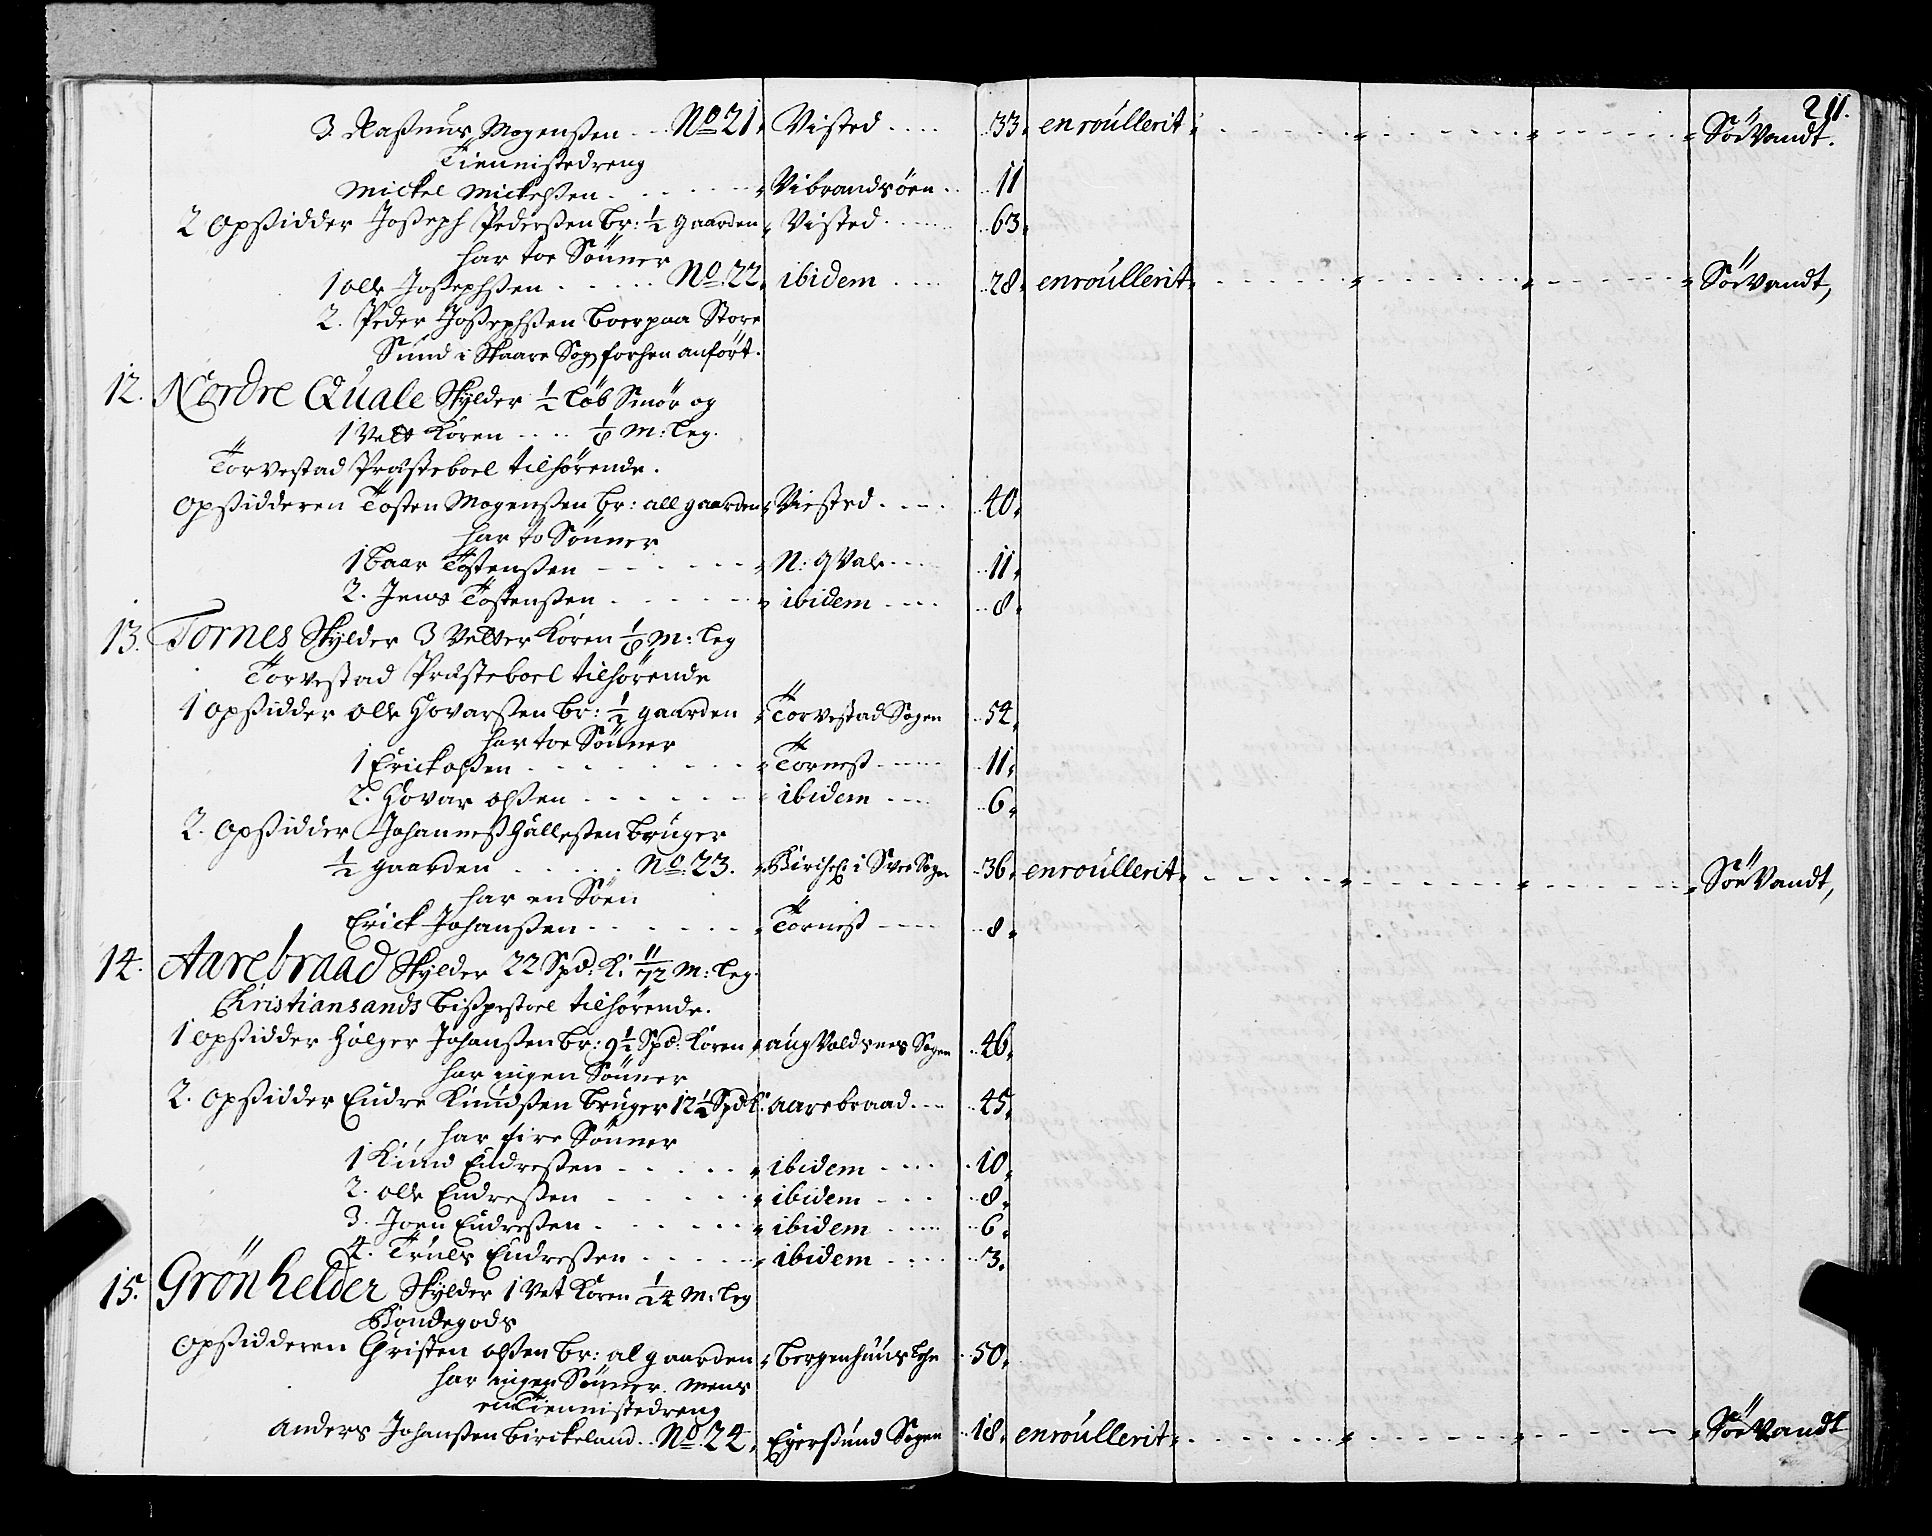 211.
3 Rasmus Mogenßen . . . No 21. Visted . . . . 33. enroullerit . . . . Söe Vandt.
Tiennistedreng
Mickel Mickelßen . . . . . . Vibrandsöen . . 11
2 Opßidder Joßeph Pederßen br: ½ gaarden Visted . . . . . 63.
har toe Sönner
1 Olle Joßephßen . . . . . No 22. ibidem . . . . 28. enroullerit . . . . Söe Vandt,
2. Peder Joßephßen boer paa Store
Sund i Skaare Sogn forhen anfört.
12. Nordre Quale Skylder ½ Löb Smör og
1 Vett Koren . . . . ⅙ M: Leg.
Torvestad Præsteboel tilhörende.
Opßidderen Tosten Mogenßen br: all gaarden Viested . . . . 40.
har to Sönner
1 Baar Tostenßen . . . . . . N: qvale . . . . 11.
2. Jens Tostenßen . . . . . . ibidem . . . . 8.
13. Tornes Skylder 3 Vetter Koren ⅙ M: Leg
Torvestad Præsteboel tilhörende
1 Opßidder Olle Hovarßen br: ½ gaarden Torvestad Sogen 54.
har toe Sönner
1 Erick olßen . . . . . . . Torneß . . . . . 11.
2. Hovar olßen . . . . . . ibidem . . . . 6.
2. Opßidder Johanneß Halleßen bruger
½ gaarden . . . . . No. 23. i Svee Sogn 36. enroullerit . . . . Söe Vandt,
har en Söen
Erick Johanßen . . . . . . Torneß . . . . 8.
14. Aarebraad Skylder 22 Spd: K: 11/72 M: Leg.
Christiansands bißpestoel tilhörende.
1 Opßidder Holger Johanßen br: 9½ Spd: Koren augvaldsnes Sogen 46.
har ingen Sönner
2. Opßidder Endre Knudßen bruger 12½ Spd K: aarebraad . . . 45.
har fire Sönner
1 Knud Endreßen . . . . . ibidem . . . . 10.
2. Olle Endreßen . . . . . ibidem . . . 8.
3. Joen Endreßen . . . . . . ibidem . . . . 6.
4. Truels Endreßen . . . . . ibidem . . . . 3.
15. Grönhelder Skylder 1 Vet Koren 1/24 M: Leg
Bondegods
Opßidderen Christen olßen br: al gaarden bergenhuus Lehn 50.
har ingen Sönner. mens
en Tiennistedreng
Anders Johanßen Birckeland . . No. 24. Egersund Sogen 18. enroullerit . . . . Söe Vandt